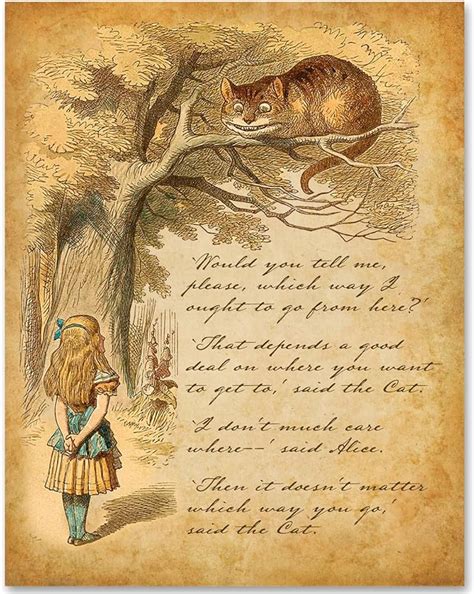 'Would you tell me,
please, which way I
ought to go from here?'
'That depends a good
deal on where you want
to get to,' said the Cat.
'I don't much care
where--' said Alice.
'Then it doesn't matter
which way you go,'
said the Cat.